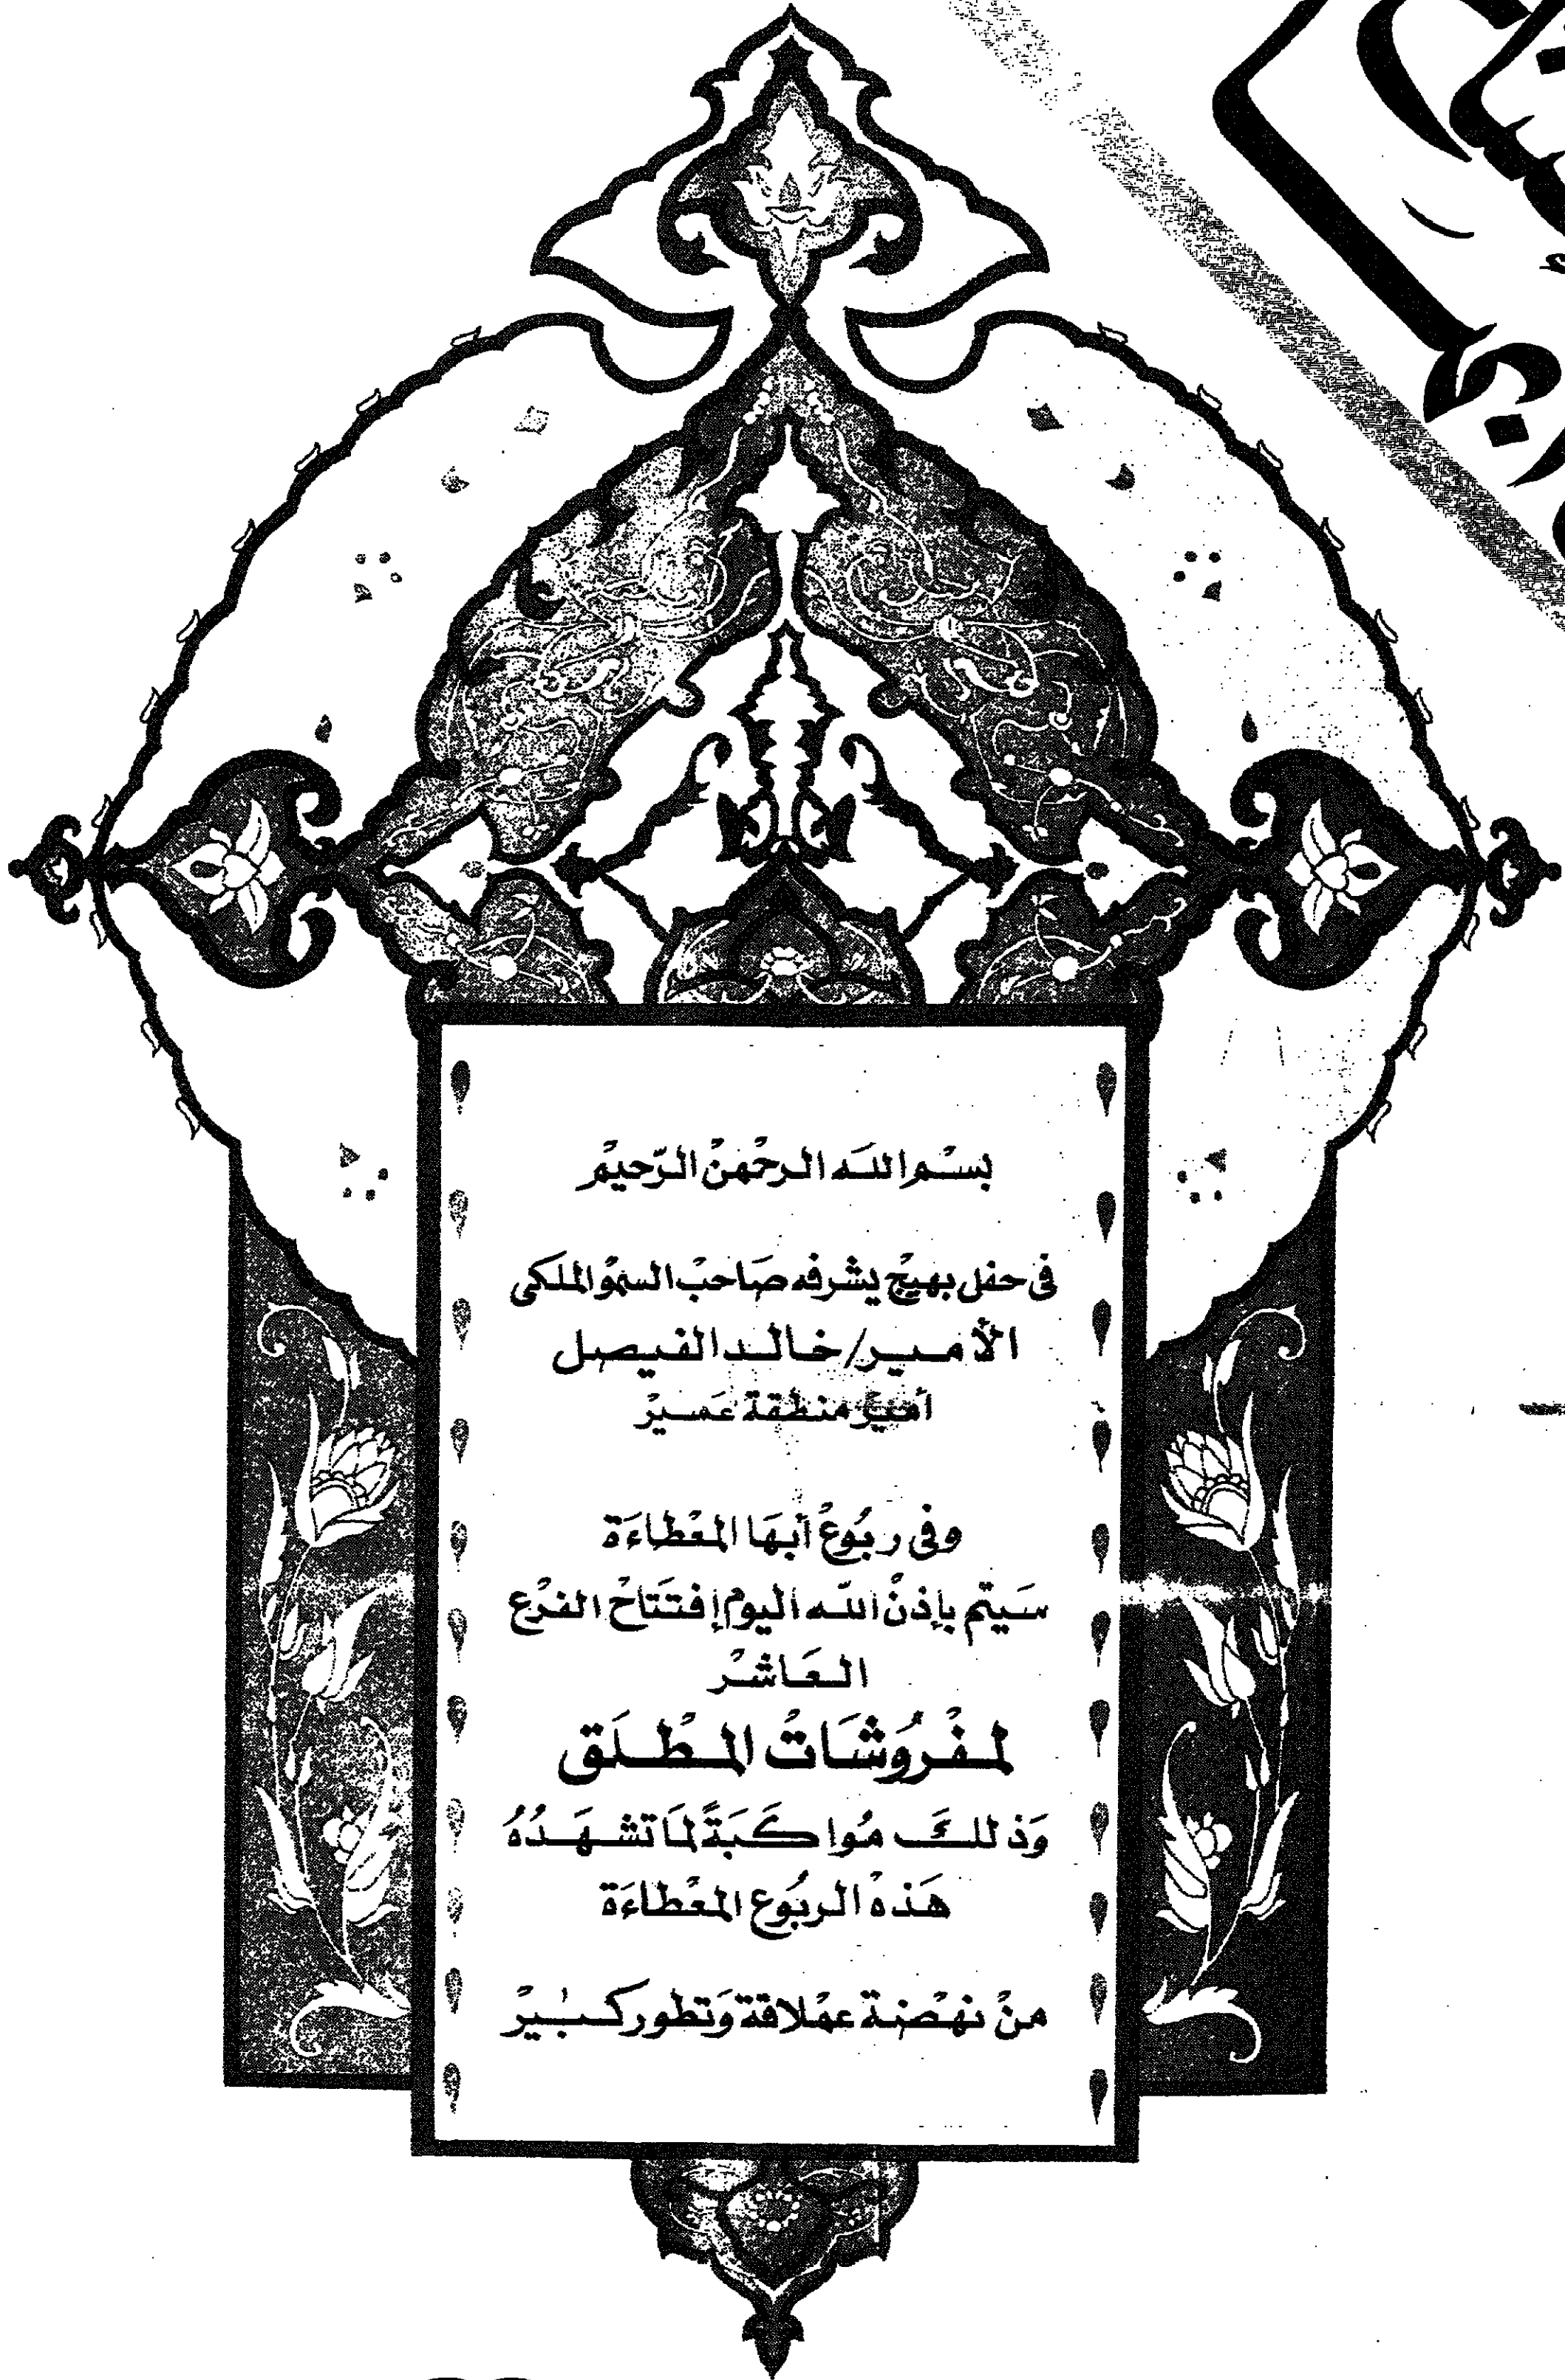 بسْم الله الرحْمنْ الرّحيْم
فى حفل بهيْج يشرفه صَاحبْ السموْ الملكى
الأمير/خالد الفيصل
أميْر منطقة عَسيْر
وفى ربُوعْ أبهَا المعْطاءَة
سَيتم بإذنْ الله اليومْ إفتتَاحْ الفرْع
العَاشرْ
لمفْرُوشَاتْ المطْلَق
وَذلكَ مُواكَبَةً لمَا تشهَدُهُ
هَذهْ الربُوع المعْطاءَة
منْ نهْضَة عمْلاقة وَتطور كبيْر